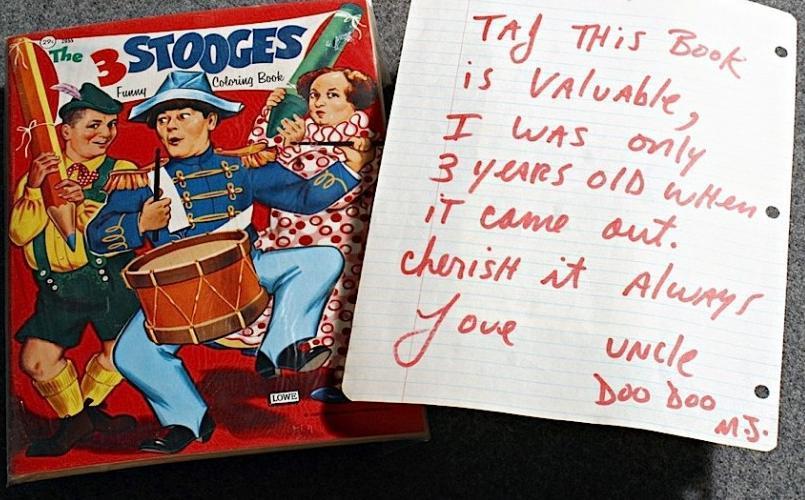 29¢ 2855
The 3 STOOGES
Funny Coloring Book
LOWE
TAJ THis Book
is VALUAble,
I WAS only
3 yEARS old wHen
iT came out.
cherisH it AlwAys
Love uncle
Doo Doo
M.J.